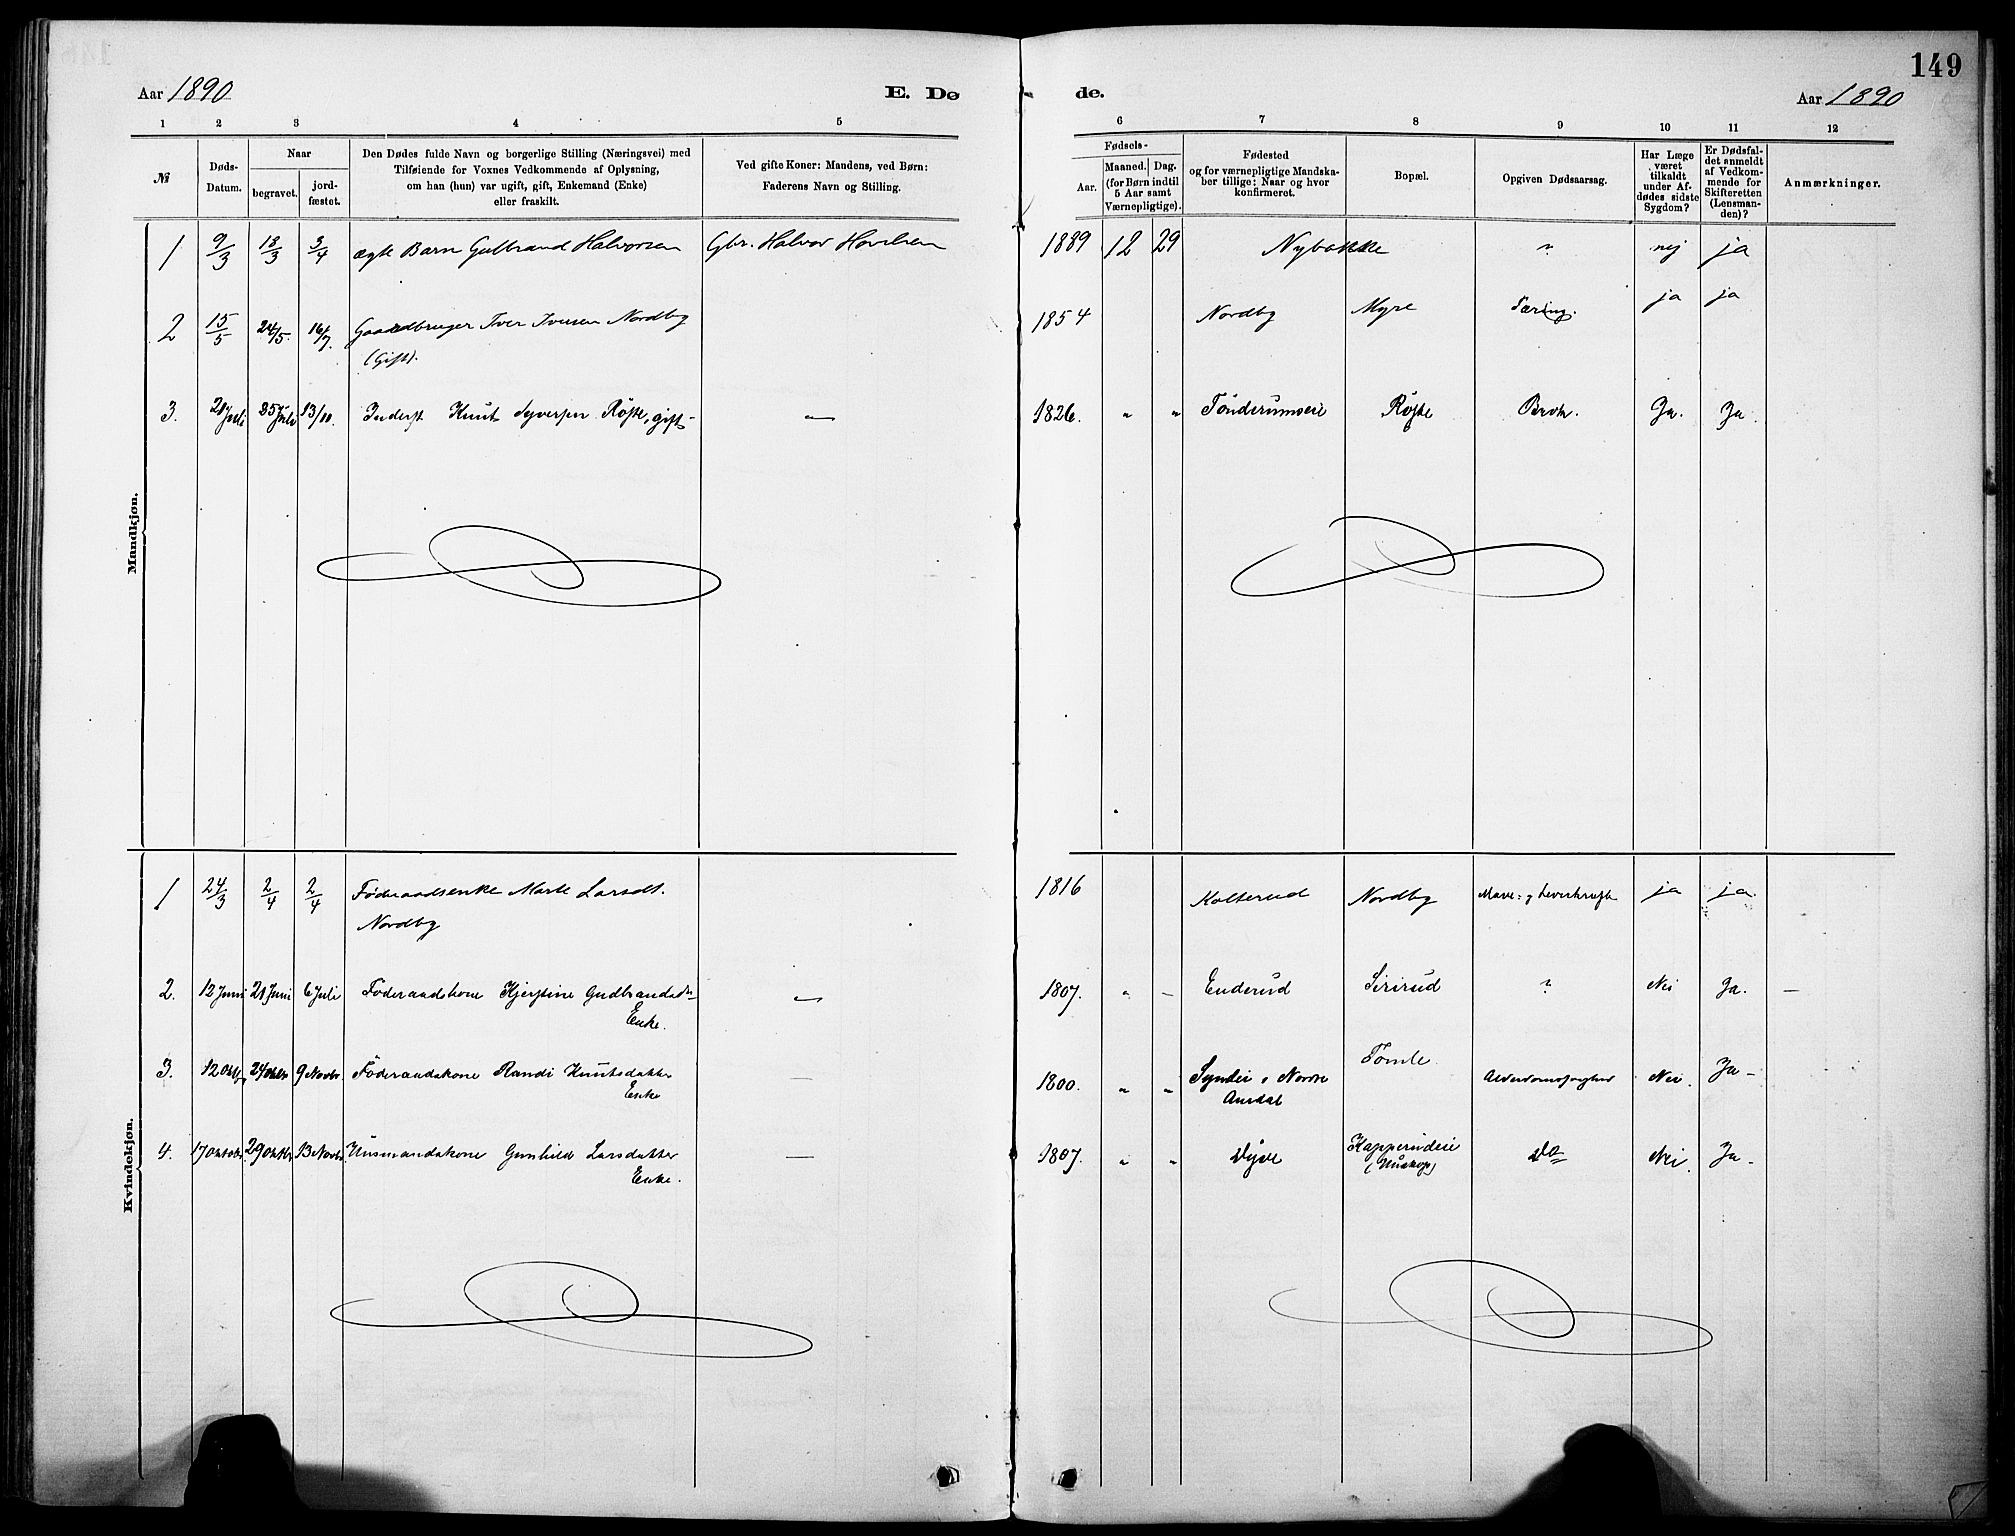 149
Aar 1890
E. Dø
de.
Aar 1890
1 2 3 4 5
6 7 8 9 10 11 12
№
Døds-
Datum.
Naar
begravet.
jord-
fæstet.
Den Dødes fulde Navn og borgerlige Stilling (Næringsvei) med
Tilføiende for Voxnes Vedkommende af Oplysning,
om han (hun) var ugift, gift, Enkemand (Enke)
eller fraskilt.
Ved gifte Koner: Mandens, ved Børn:
Faderens Navn og Stilling.
Fødsels-
Aar.
Maaned. Dag.
(for Børn indtil
5 Aar samt
Værnepligtige).
Fødested
og for værnepligtige Mandska-
ber tillige: Naar og hvor
konfirmeret.
Bopæl.
Opgiven Dødsaarsag.
Har Læge
været
tilkaldt
under Af-
dødes sidste
Sygdom?
Er Dødsfal-
det anmeldt
af Vedkom-
mende for
Skifteretten
(Lensman-
den)?
Anmærkninger.
Mandkjøn.
1 9/3 18/3 3/4 ægte Barn Gulbrand Halvorsen Gbr. Halvor Hovelsen 1889 12 29 Nybakke ? nej ja
2 15/5 24/5. 16/7. Gaardbruger Iver Iversen Nordby 1854 Nordby Myre Tæring. ja ja
(Gift).
3. 21 Juli 25 Juli 13/10. Inderst Knut Syversen Røste, gift - — 1826. " " Tønderumseie Røste Brok. Ja. Ja.
Kvindekjøn.
1 24/3 2/4 2/4 Føderaadsenke Marte Larsdt. 1816 Kolterud Nordby Mave- og Leverkræft ja ja
Nordby
2. 12 Juni 21 Juni 6 Juli Føderaadskone Kjerstine Gudbrandsd. — 1807. " — Enderud Sirirud ? Nei Ja. —
Enke.
3. 12 Oktb. 24 Oktbr. 9 Novbr. Føderaadskone Randi Knutsdatter — 1800. " " Synder i Nordre Tomle Alderdomssvaghed Nei. Ja -
Enke
Aurdal
4. 17 Oktobr. 29 Oktbr. 13 Novbr. Husmandskone Gunhild Larsdatter — 1807. " " Kapperudeie Do Nei. Ja -
Enke.